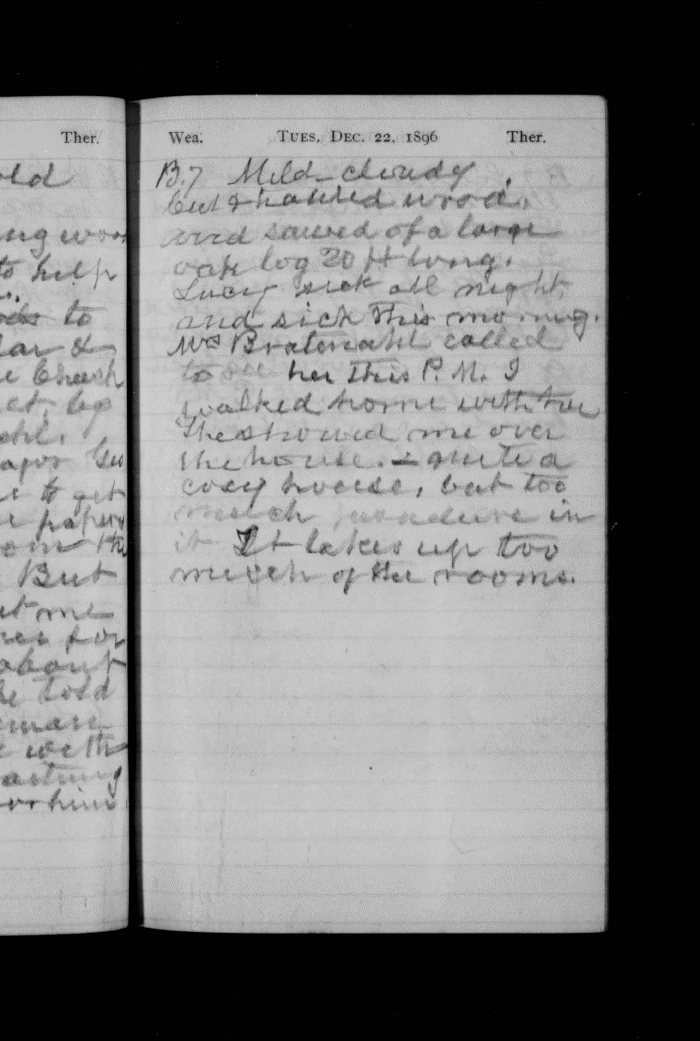 Ther.
old
ng
to help
to
&
Check
to get
paper
the
But
me
for
about
he told
man
with
him
Wea. TUES. DEC. 22, 1896 Ther.
B.7 Mild - cloudy
Cut & hauled wood.
and sawed of a large
oak log 20 ft long.
Lucy sick all night
and sick this morning.
Mrs called
to see her this P.M. I
walked home with her
She showed me over
the house. - quite a
cosy house, but too
much furniture in
it It takes up too
much of the rooms.